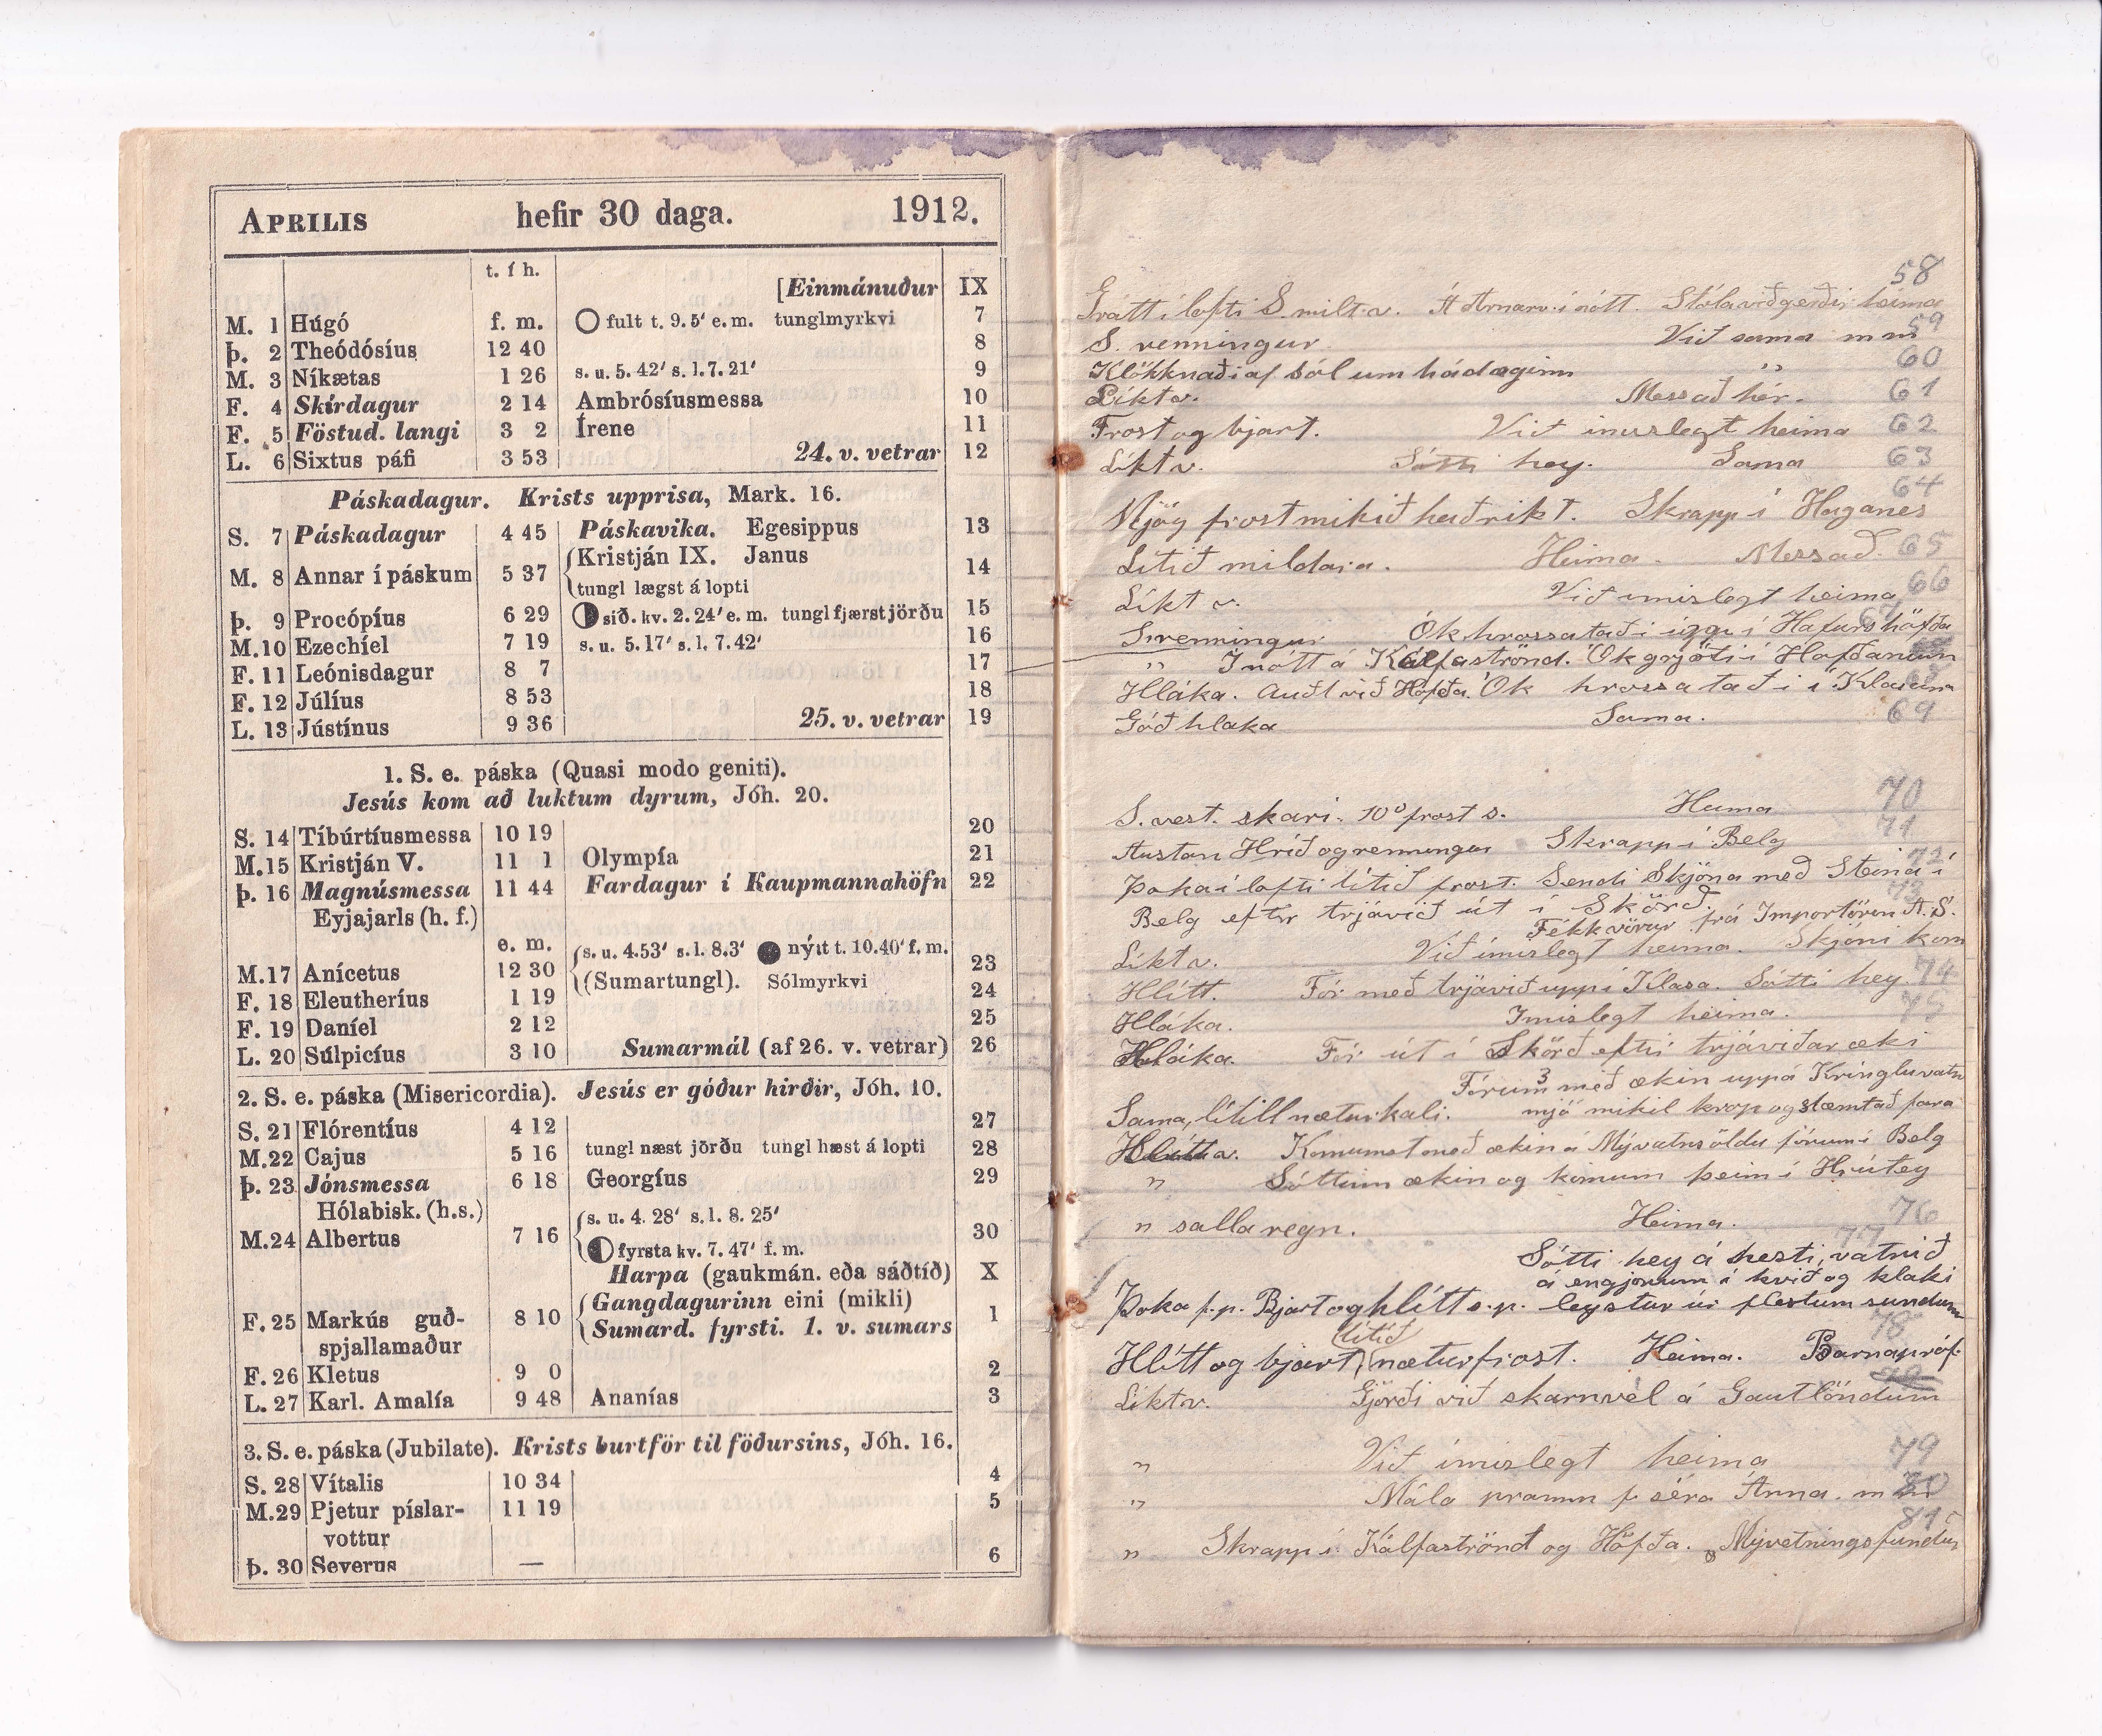 APRILIS hefir 30 daga. 1912.
t. í h.
[Einmánuður IX
M. 1 Húgó f. m. fult t. 9.5′ e. m. tunglmyrkvi 7
Þ. 2 Theódósíus 12 40 8
M. 3 Níkætas 1 26 s. u. 5. 42′ s. l. 7. 21′ 9
F. 4 Skírdagur 2 14 Ambrósíusmessa 10
F. 5 Föstud. langi 3 2 Írene 11
L. 6 Sixtus páfi 3 53 24. v. vetrar 12
Páskadagur. Krists upprisa, Mark. 16.
S. 7 Páskadagur 4 45 Páskavika. Egesippus 13
Kristján IX. Janus
M. 8 Annar í páskum 5 37 14
tungl lægst á lopti
Þ. 9 Procópíus 6 29 síð. kv. 2. 24′ e. m. tungl fjærst jörðu 15
M. 10 Ezechíel 7 19 s. u. 5. 17′ s. l. 7. 42′ 16
F. 11 Leónisdagur 8 7 17
F. 12 Júlíus 8 53 18
L. 13 Jústínus 9 36 25. v. vetrar 19
1. S. e. páska (Quasi modo geniti).
Jesús kom að luktum dyrum, Jóh. 20.
S. 14 Tíbúrtíusmessa 10 19 20
M. 15 Kristján V. 11 1 Olympía 21
Þ. 16 Magnúsmessa 11 44 Fardagur í Kaupmannahöfn 22
Eyjajarls (h. f.)
e. m. s. u. 4. 53′ s. l. 8. 3′ nýtt t. 10. 40′ f. m.
M. 17 Anícetus 12 30 (Sumartungl). Sólmyrkvi 23
F. 18 Eleutheríus 1 19 24
F. 19 Daníel 2 12 25
L. 20 Súlpicíus 3 10 Sumarmál (af 26. v. vetrar) 26
2. S. e. páska (Misericordia). Jesús er góður hirðir, Jóh. 10.
S. 21 Flórentíus 4 12 27
M. 22 Cajus 5 16 tungl næst jörðu tungl hæst á lopti 28
Þ. 23 Jónsmessa 6 18 Georgíus 29
Hólabisk. (h. s.)
s. u. 4. 28′ s. l. 8. 25′
M. 24 Albertus 7 16 30
fyrsta kv. 7. 47′ f. m.
Harpa (gaukmán. eða sáðtíð) X
Gangdagurinn eini (mikli)
F. 25 Markús guð- 8 10 1
Sumard. fyrsti. 1. v. sumars
spjallamaður
F. 26 Kletus 9 0 2
L. 27 Karl. Amalía 9 48 Ananías 3
3. S. e. páska (Jubilate). Krists burtför til föðursins, Jóh. 16.
S. 28 Vítalis 10 34 4
M. 29 Pjetur píslar- 11 19 5
vottur
Þ. 30 Severus — 6
58
Grátt í lofti S. milt v. Á Arnarv. í nótt. Stólaviðgerðir heima
59
S. renningur Við sama m m
Klökknaði af sól um hádaginn " 60
Líkt v. Messað hér. 61
Frost og bjart. Við imislegt heima 62
Líkt v. Sótti hey. Sama 63
64
Mjög frostmikið heðrikt. Skrapp í Haganes
Lítið mildara. Heima. Messað. 65
66
Líkt v. Við imislegt heima
67
S. renningur Ók hrossataði uppi í Hafurshöfða
" I nótt á Kálfaströnd. Ók grjóti í Hafðanum
Hláka. Auðt við Höfða. Ók hrossataði í Klasana
Góð hlaka Sama. 69
70
S. vest. skari. 10° frost s. Heima
71
Austan Hríð og renningur Skrapp í Belg
72
Þoka í lofti lítið frost. Sendi Skjóna með Steina í
73
Belg eftir trjávið út í Skörð.
Fékk vörur frá Importören A. S.
Líkt v. Við imislegt heima. Skjóni kom
74
Hlítt. Fór með trjávið upp í Klasa. Sótti hey.
75
Hláka. Imislegt heima.
Hláka. Fór út í Skörð eftir trjáviðaræki
Fórum 3 með ækin uppá Kringluvatn
Sama, lítill næturkali. mjö mikil krop og slæmt að fara
Hlítt v. Komumst með ækin á Mývatnsöldu fórum í Belg
" Sóttum ækin og komum þeim í Hrútey
76
" salla regn. Heima.
77
Sótti hey á hesti, vatnið
á engjonum í kvið og klaki
Þoka f. p. Bjart og hlítt s. p. leystur úr flestum sundum
78
lítið
Hlítt og bjart, næturfrost. Heima. Barnapróf.
Líkt v. Gjörði við skarnvél á Gautlöndum
79
" Við imislegt heima
80
" Mála pramm f. séra Árna. m
81
" Skrapp í Kálfaströnd og Höfða. Mývetningsfundur